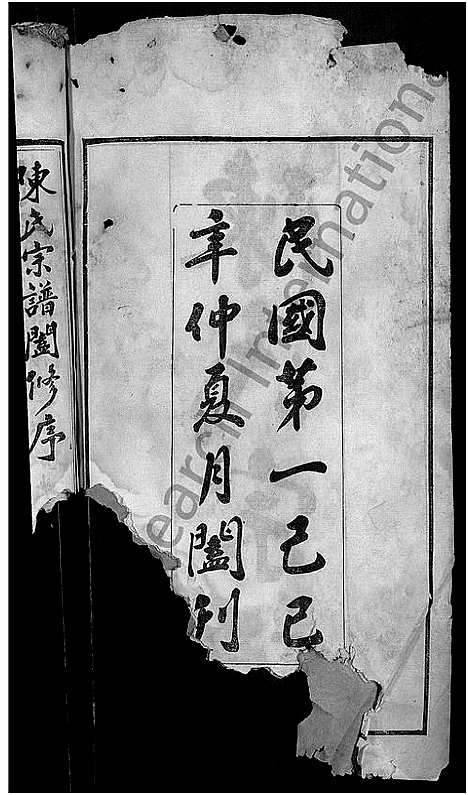 民國第一己巳
年仲夏月闔刊
陳氏宗譜闔修序
earch International